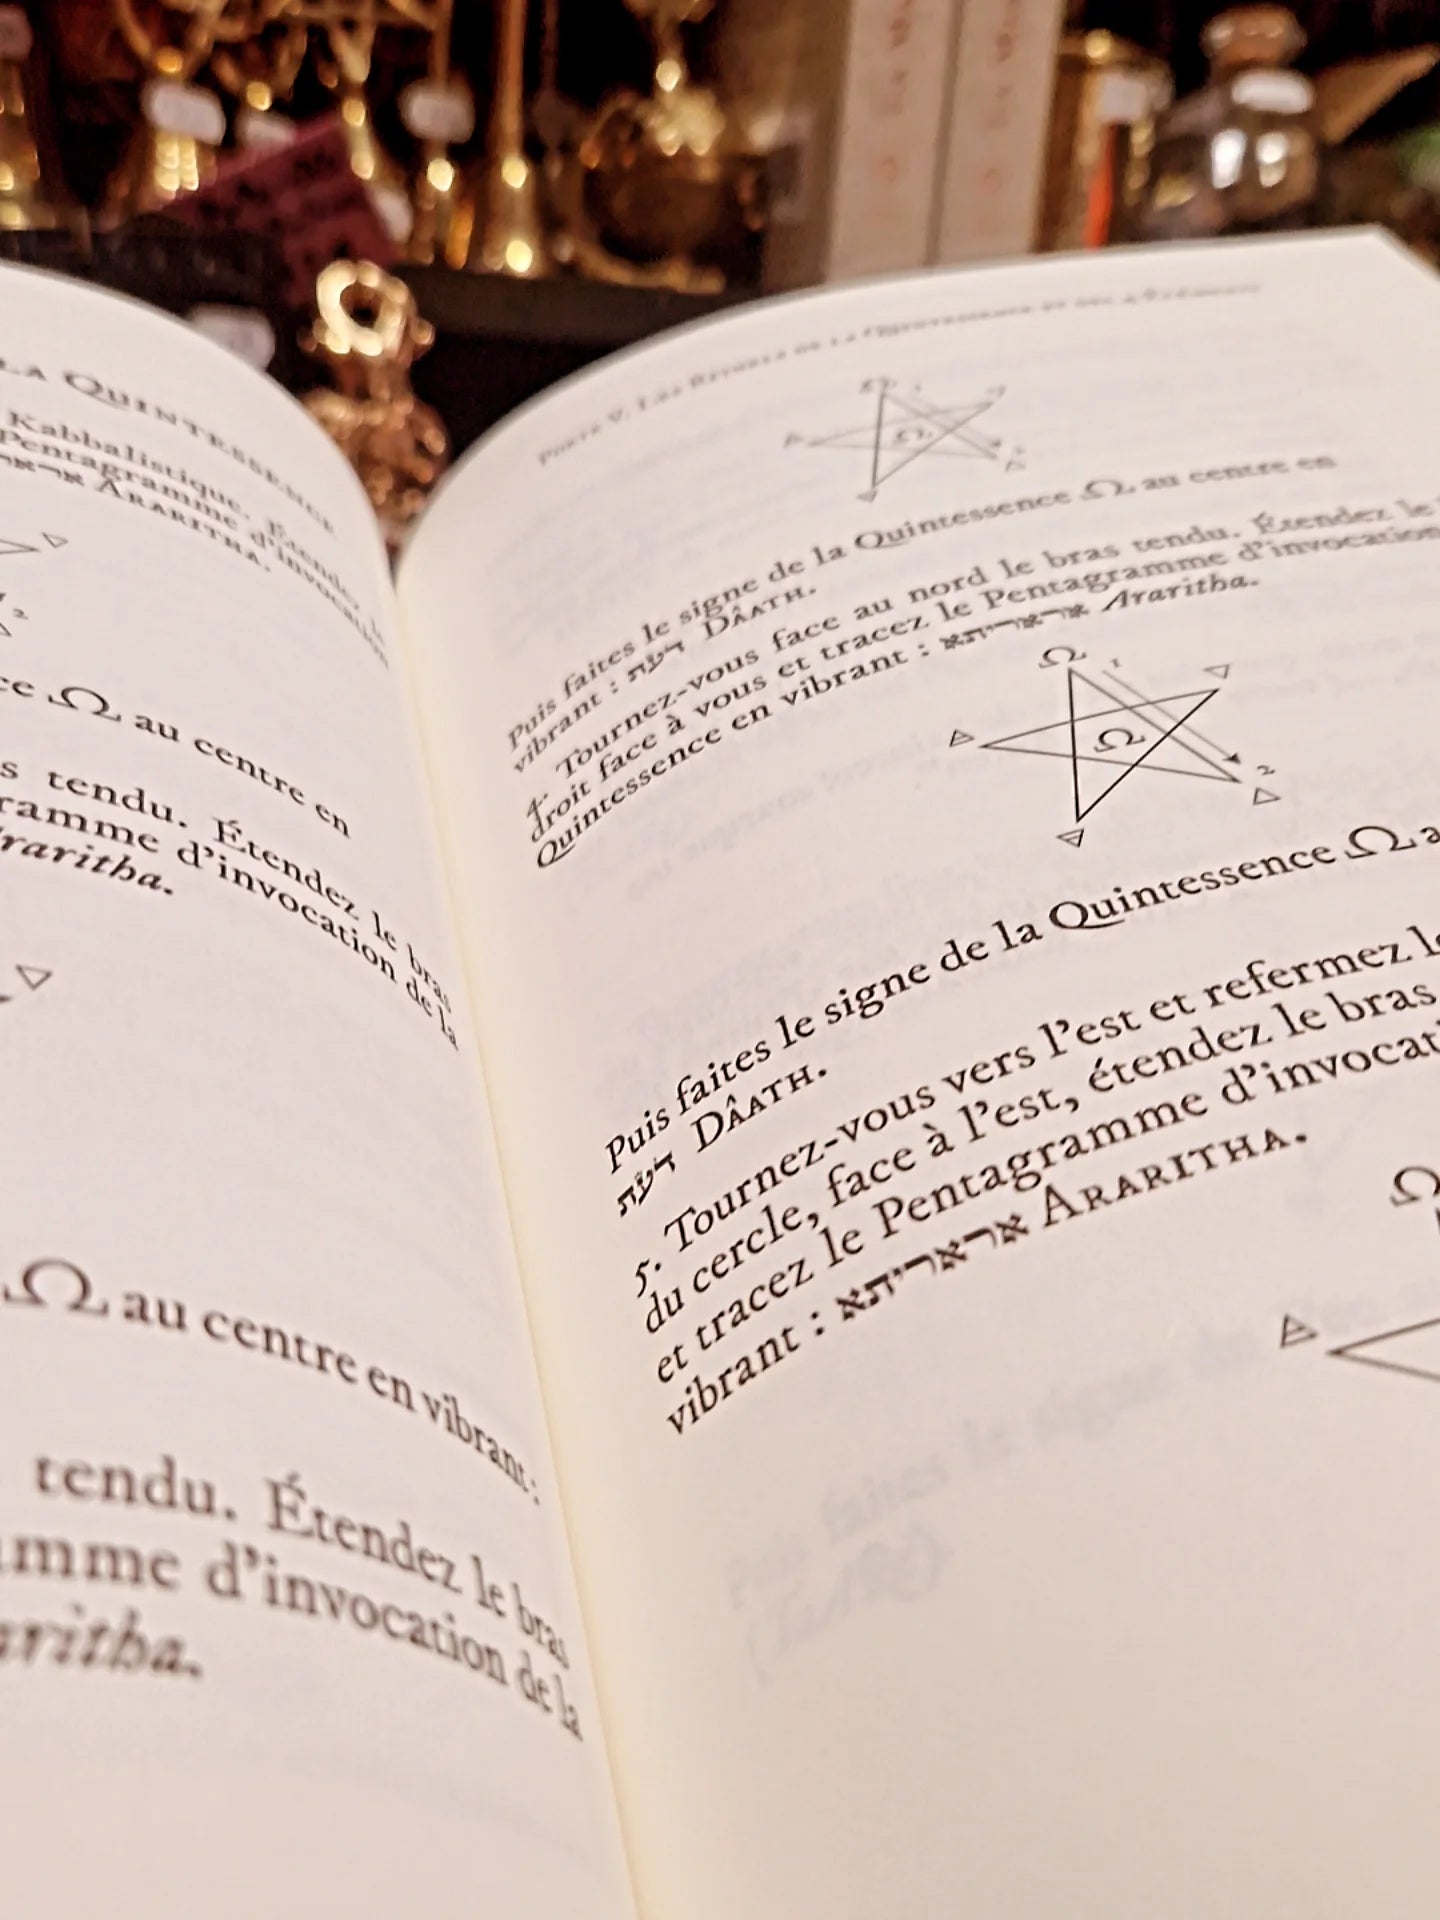 LA QUINTESSENCE
Kabbalistique. Étendez le
Pentagramme d'invocation
אראריתא ARARITHA.
2
Ω au centre en
tendu. Étendez le bras
ramme d'invocation de la
raritha.
Ω au centre en vibrant :
tendu. Étendez le bras
amme d'invocation de la
aritha.
PORTE V. LES RITUELS DE LA QUINTESSENCE ET DES 4 ÉLÉMENTS
Ω
1
Ω
2
Puis faites le signe de la Quintessence Ω au centre en
vibrant : דעת DÂATH.
4. Tournez-vous face au nord le bras tendu. Étendez le
droit face à vous et tracez le Pentagramme d'invocation
Quintessence en vibrant : אראריתא Araritha.
Ω
1
Ω
2
Puis faites le signe de la Quintessence Ω a
דעת DÂATH.
5. Tournez-vous vers l'est et refermez le
du cercle, face à l'est, étendez le bras
et tracez le Pentagramme d'invocat
vibrant : אראריתא ARARITHA.
Ω